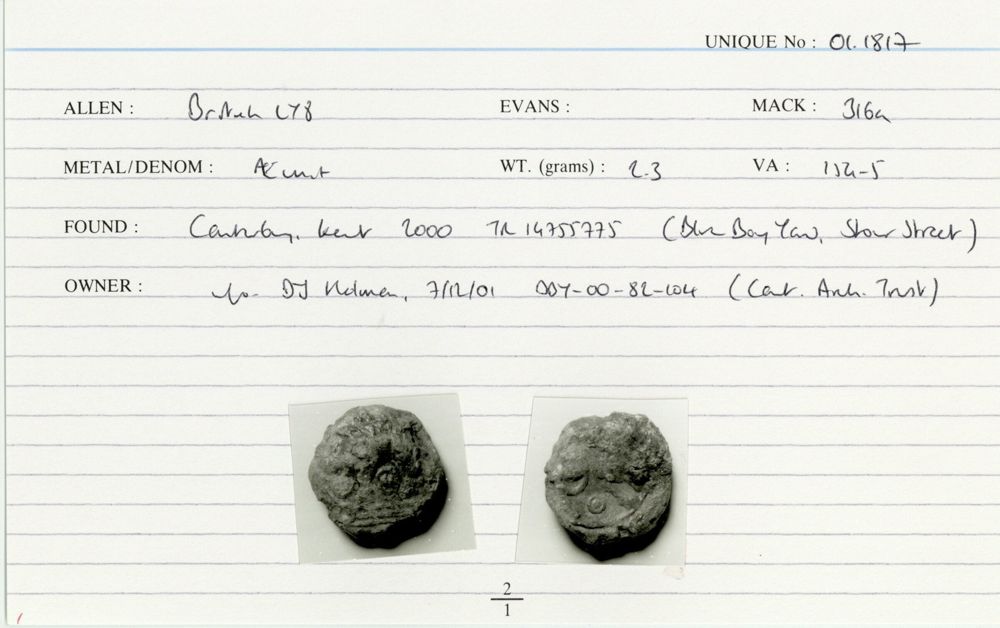 UNIQUE No : 01.1817
ALLEN : British LY8 EVANS : MACK : 316a
METAL/DENOM : Æ unit WT. (grams) : 2.3 VA : 154-5
FOUND : Canterbury, Kent 2000 TR 14755775 (Blue Boy Yard, Stour Street)
OWNER : DJ Holman, 7/12/01 (Cant. Arch. Trust)
2
1